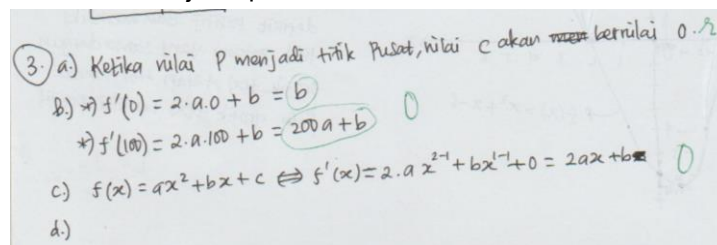 3. a.) Ketika nilai P menjadi titik Pusat, nilai c akan bernilai 0. 2
b.) *) f'(0) = 2.a.0 + b = b 0
*) f'(100) = 2.a.100 + b = 200a+b
c.) f(x) = ax² + bx + c ⇔ f'(x) = 2.a x²⁻¹ + bx¹⁻¹ + 0 = 2ax + b 0
d.)